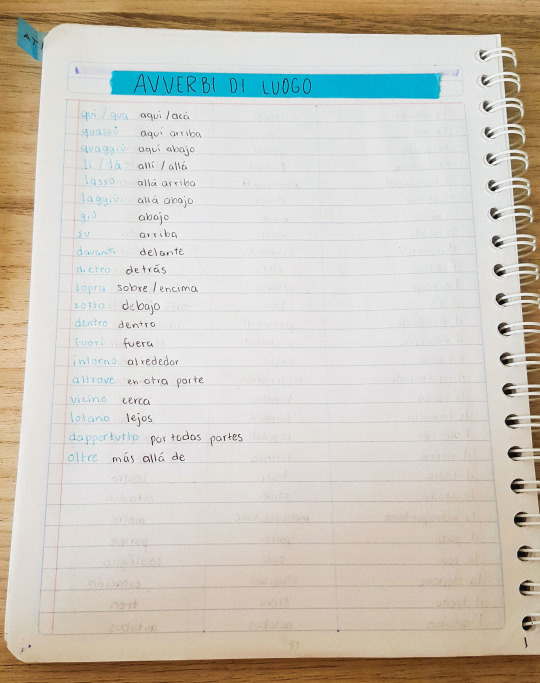 AVVERBI DI LUOGO
qui / qua aquí / acá
quassù aquí arriba
quaggiù aquí abajo
lì / là allí / allá
lassù allá arriba
laggiù allá abajo
giù abajo
su arriba
davanti delante
dietro detrás
sopra sobre / encima
sotto debajo
dentro dentro
fuori fuera
intorno alrededor
altrove en otra parte
vicino cerca
lotano lejos
dappertutto por todas partes
oltre más allá de